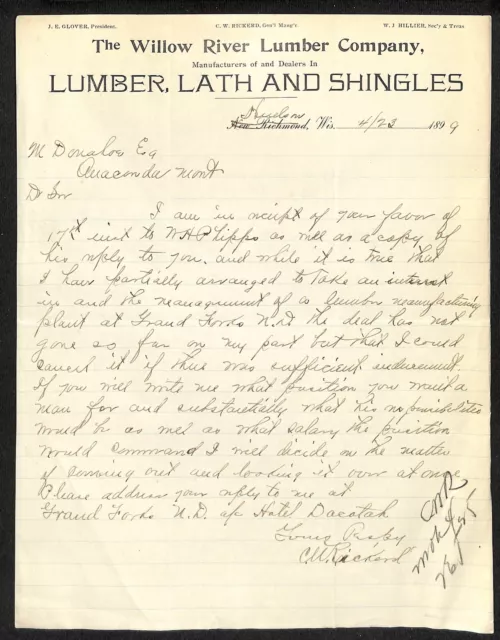 J. E. GLOVER, President. C. W. RICKERD, Gen'l Mang'r. W. J HILLIER, Sec'y & Treas
The Willow River Lumber Company,
Manufacturers of and Dealers In
LUMBER, LATH AND SHINGLES
Hudson
New Richmond, Wis. 4/23 1899
M Donahoe Esq
Anaconda Mont
Dr Sir
I am in receipt of your favor of
17th inst to W H Phipps as well as a copy of
his reply to you, and while it is true that
I have partially arranged to take an interest
in and the management of a lumber manufacturing
plant at Grand Forks N.D. the deal has not
gone so far on my part but that I could
cancel it if there was sufficient inducement.
If you will write me what position you want a
man for and substantially what his responsibilities
would be as well as what salary the position
would command I will decide on the matter
of coming out and looking it over at once
Please address your reply to me at
Grand Forks N.D. c/o Hotel Dacotah
Yours Respy
C.W. Rickerd